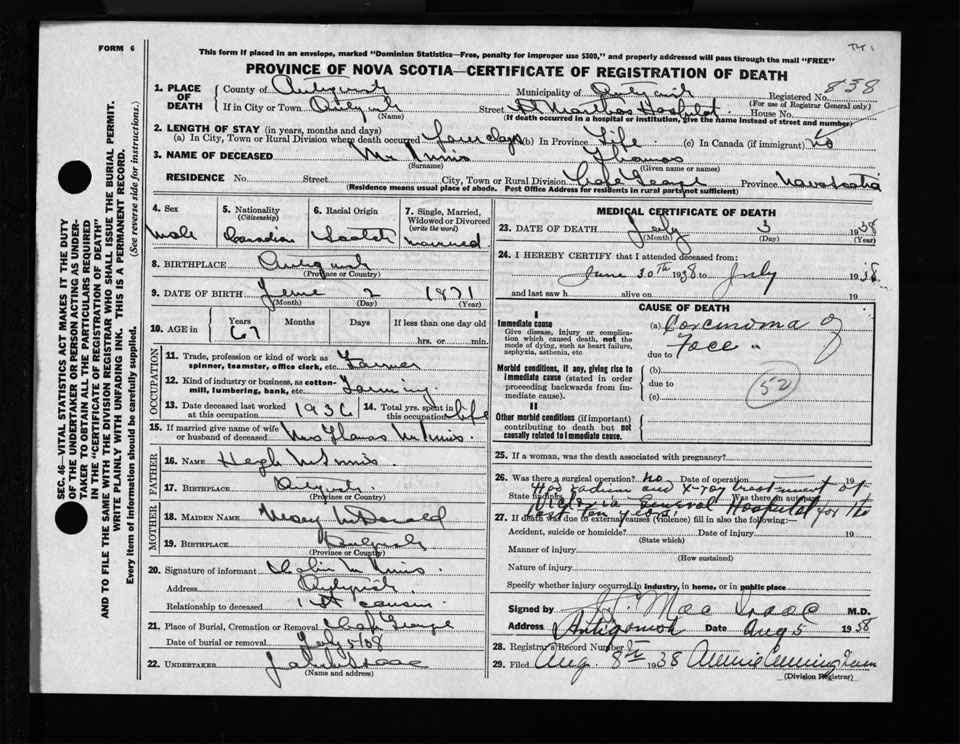 FORM 6
This form if placed in an envelope, marked "Dominion Statistics—Free, penalty for improper use $300," and properly addressed will pass through the mail "FREE"
PROVINCE OF NOVA SCOTIA—CERTIFICATE OF REGISTRATION OF DEATH
838
1. PLACE OF DEATH County of Antigonish Municipality of Antigonish Registered No. (For use of Registrar General only)
If in City or Town Antigonish (Name) Street St Marthas Hospital House No.
(If death occurred in a hospital or institution, give the name instead of street and number)
2. LENGTH OF STAY (in years, months and days)
(a) In City, Town or Rural Division where death occurred four days (b) In Province Life (c) In Canada (if immigrant) No
3. NAME OF DECEASED McInnis (Surname) Thomas (Given name or names)
RESIDENCE No. Street City, Town or Rural Division Cape George Province Nova Scotia
(Residence means usual place of abode. Post Office Address for residents in rural parts not sufficient)
4. Sex Male
5. Nationality (Citizenship) Canadian
6. Racial Origin Scotch
7. Single, Married, Widowed or Divorced (write the word) married
8. BIRTHPLACE Antigonish (Province or Country)
9. DATE OF BIRTH June (Month) 2 (Day) 1871 (Year)
10. AGE in Years 67 Months Days If less than one day old hrs. or min.
OCCUPATION
11. Trade, profession or kind of work as spinner, teamster, office clerk, etc. Farmer
12. Kind of industry or business, as cotton-mill, lumbering, bank, etc. Farming
13. Date deceased last worked at this occupation 1936 14. Total yrs. spent in this occupation life
15. If married give name of wife or husband of deceased Mrs Thomas McInnis
FATHER
16. NAME Hugh McInnis
17. BIRTHPLACE Antigonish (Province or Country)
MOTHER
18. MAIDEN NAME Mary McDonald
19. BIRTHPLACE Antigonish (Province or Country)
20. Signature of informant Colin McInnis
Address Antigonish
Relationship to deceased 1st cousin
21. Place of Burial, Cremation or Removal Cape George
Date of burial or removal July 5/38
22. UNDERTAKER (Name and address)
MEDICAL CERTIFICATE OF DEATH
23. DATE OF DEATH July (Month) 3 (Day) 1938 (Year)
24. I HEREBY CERTIFY that I attended deceased from
June 30th 1938 to July 1938
and last saw h alive on 19
CAUSE OF DEATH
I
Immediate cause
Give disease, injury or complication which caused death, not the mode of dying, such as heart failure, asphyxia, asthenia, etc
(a) Carcinoma of
due to Face "
Morbid conditions, if any, giving rise to immediate cause (stated in order proceeding backwards from immediate cause).
(b)
due to
(c)
52
II
Other morbid conditions (if important) contributing to death but not causally related to Immediate cause.
25. If a woman, was the death associated with pregnancy?
26. Was there a surgical operation? no Date of operation 19
State findings Was there an autopsy
Had radium and x-ray treatment at
Victoria General Hospital for the
last ten years.
27. If death was due to external causes (violence) fill in also the following:—
Accident, suicide or homicide? (State which) Date of injury 19
Manner of injury (How sustained)
Nature of injury
Specify whether injury occurred in industry, in home, or in public place
Signed by J. MacIsaac M.D.
Address Antigonish Date Aug 5 1938
28. Registrar's Record Number
29. Filed Aug. 8th 1938 Annie Cunningham (Division Registrar)
SEC. 46—VITAL STATISTICS ACT MAKES IT THE DUTY
OF THE UNDERTAKER OR PERSON ACTING AS UNDERTAKER
TO OBTAIN ALL THE PARTICULARS REQUIRED
IN THE "CERTIFICATE OF REGISTRATION OF DEATH"
AND TO FILE THE SAME WITH THE DIVISION REGISTRAR WHO SHALL ISSUE THE BURIAL PERMIT.
WRITE PLAINLY WITH UNFADING INK. THIS IS A PERMANENT RECORD.
Every item of information should be carefully supplied. (See reverse side for instructions.)